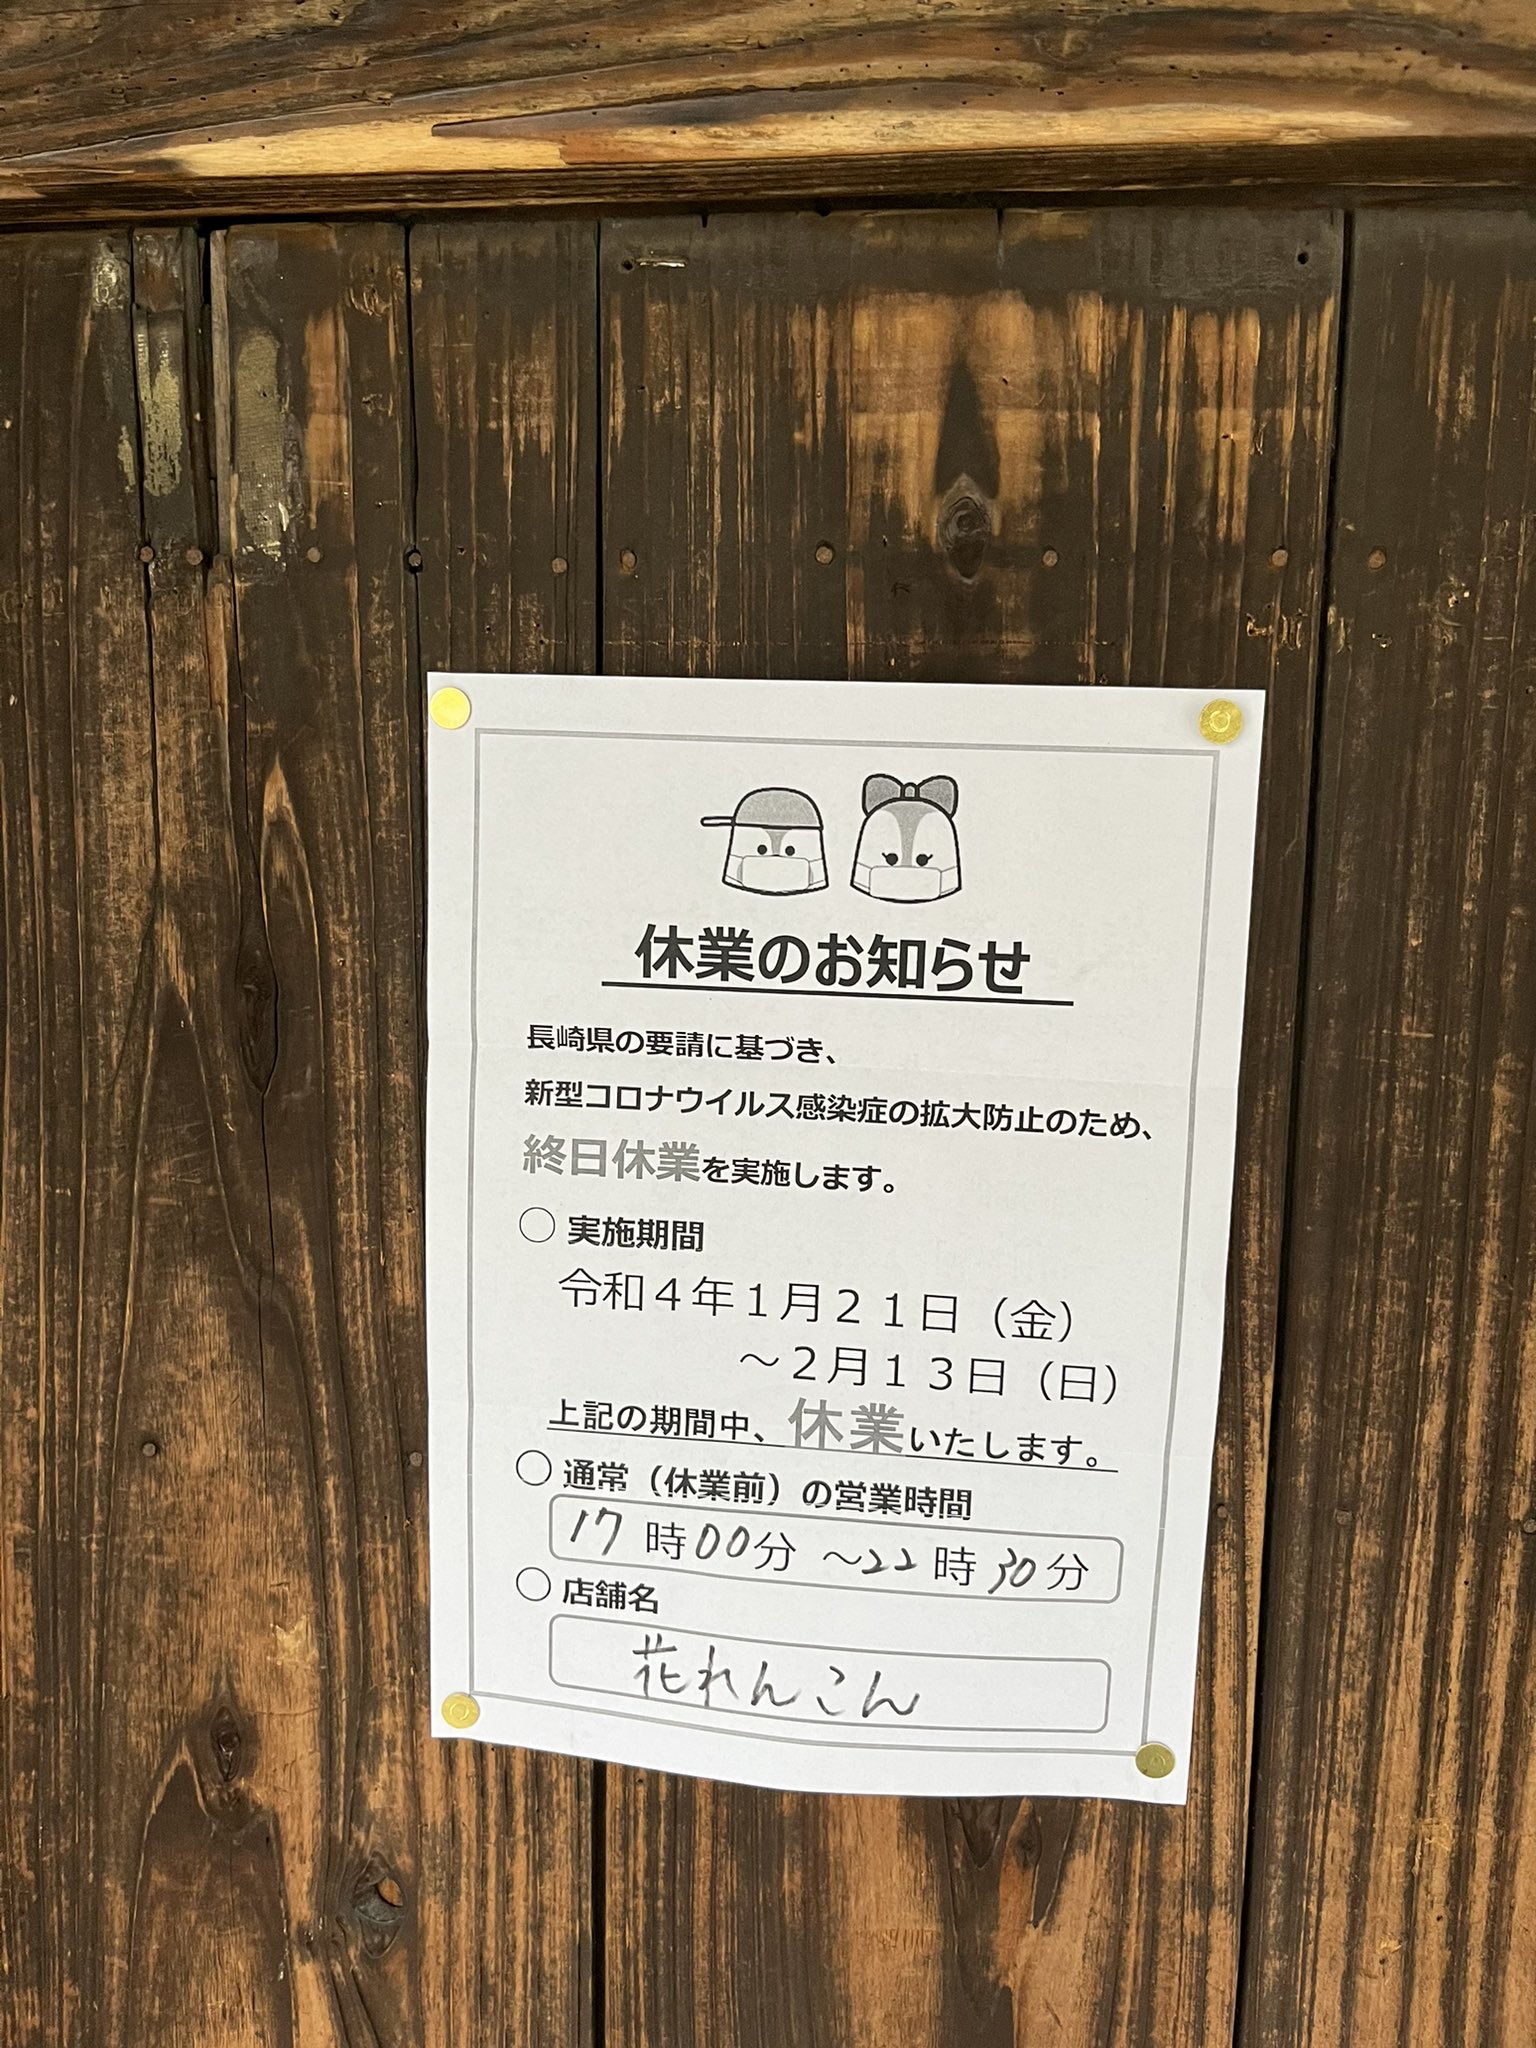 休業のお知らせ
長崎県の要請に基づき、
新型コロナウイルス感染症の拡大防止のため、
終日休業を実施します。
○ 実施期間
令和４年１月２１日（金）
～２月１３日（日）
上記の期間中、休業いたします。
○ 通常（休業前）の営業時間
17時00分～22時30分
○ 店舗名
花れんこん